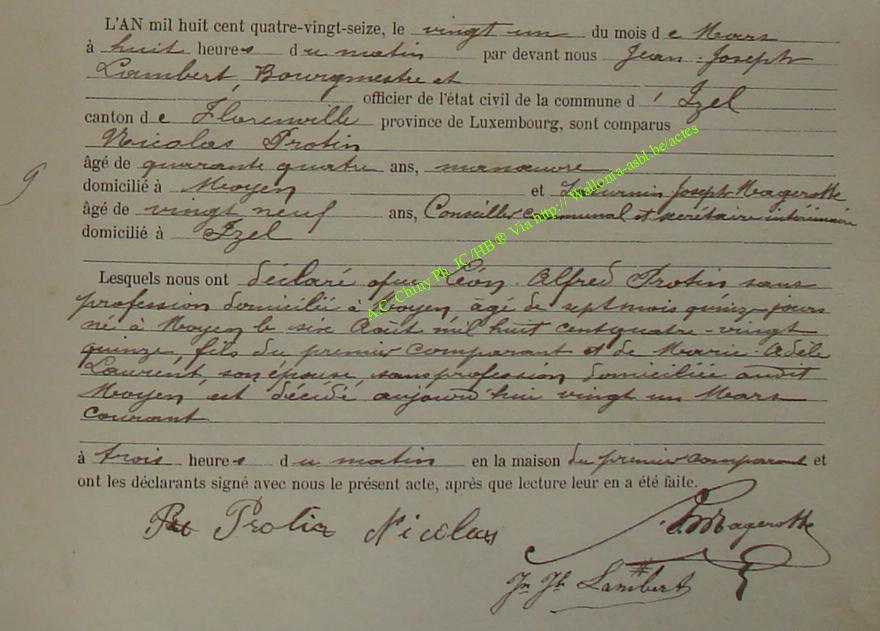 L'AN mil huit cent quatre-vingt-seize, le vingt un du mois de Mars
à huit heures du matin par devant nous Jean-Joseph
Lambert, Bourgmestre et
officier de l'état civil de la commune d' Izel
canton de Florenville province de Luxembourg, sont comparus
Nicolas Protin
âgé de quarante quatre ans, manœuvre
9
domicilié à Moyen et Saturnin Joseph Magerotte
âgé de vingt neuf ans, Conseiller communal et secrétaire intérimaire
domicilié à Izel
Lesquels nous ont déclaré que Léon Alfred Protin sans
profession domicilié à Moyen âgé de sept mois quinze jours
né à Moyen le six Août mil huit cent quatre-vingt
quinze, fils du premier comparant et de Marie-Adèle
Laurent, son épouse, sans profession domiciliée audit
Moyen est décédé aujourd'hui vingt un Mars
courant
à trois heures du matin en la maison du premier comparant et
ont les déclarants signé avec nous le présent acte, après que lecture leur en a été faite.
Protin Nicolas
S. Magerotte
Jn Jh Lambert
A.C. Chiny Ph. JC/HB ® Via http://Wallonia-asbl.be/actes